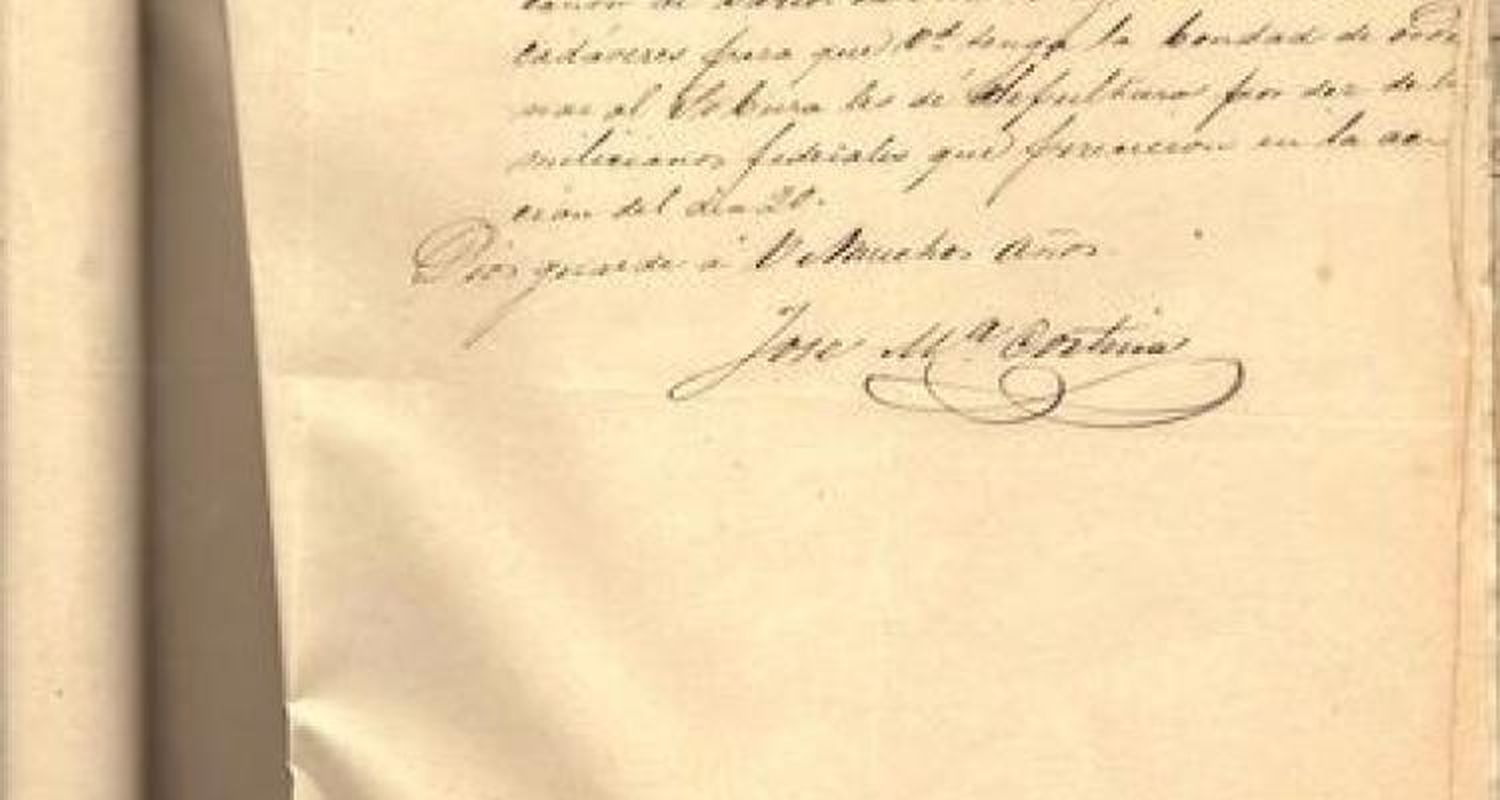 cadáveres para que Vd. tenga la bondad de orde
nar al Sr Cura les dé Sepultura por ser de los
milicianos federales que perecieron en la ac
ción del día 20.
Dios guarde á V. Muchos Años.
Jose Mª Cortina